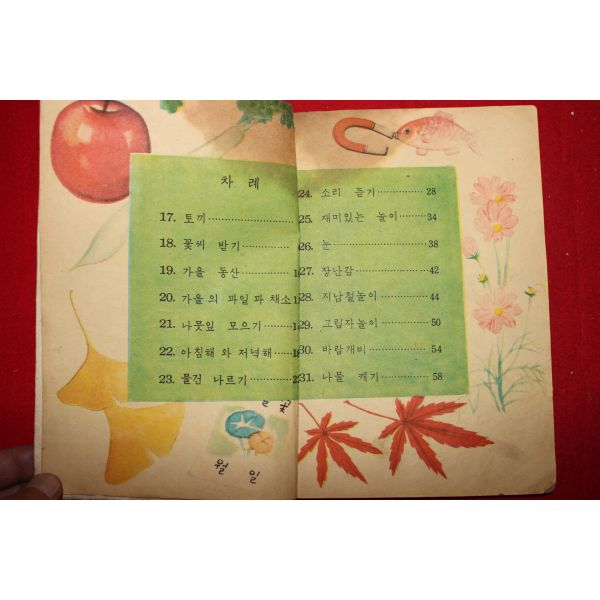 차 례
17. 토끼
18. 꽃씨 받기
19. 가을 동산
20. 가을의 과일과 채소
21. 나뭇잎 모으기
22. 아침해와 저녁해
23. 물건 나르기
24. 소리 듣기 28
25. 재미있는 놀이 34
26. 눈 38
27. 장난감 42
28. 지남철놀이 44
29. 그림자놀이 50
30. 바람개비 54
31. 나물 캐기 58
월 일